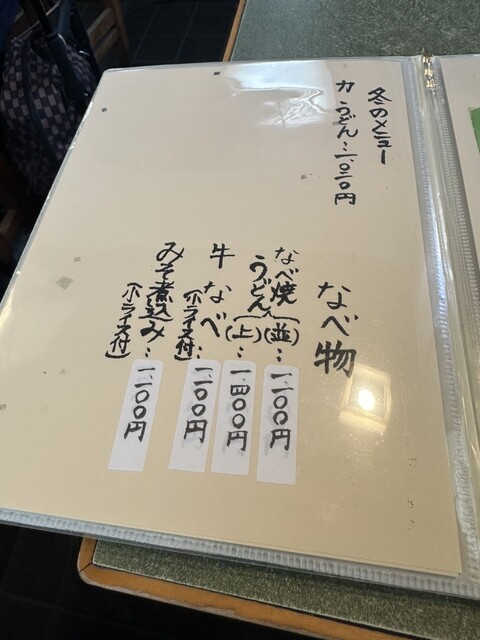 冬のメニュー
力うどん…一.〇二〇円
なべ物
なべ焼うどん
(並)…一.一〇〇円
(上)…一.四〇〇円
牛なべ…一.一〇〇円
(小ライス付)
みそ煮込み…一.一〇〇円
(小ライス付)